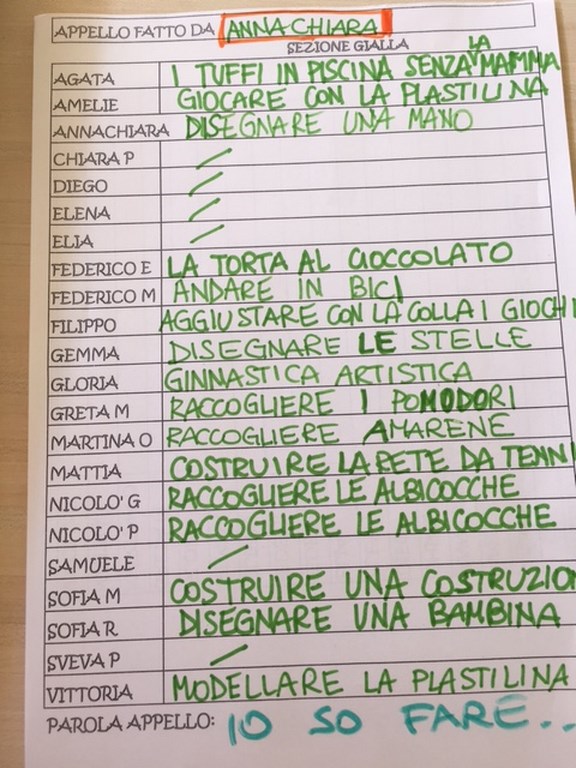 APPELLO FATTO DA ANNA-CHIARA
SEZIONE GIALLA
AGATA I TUFFI IN PISCINA SENZA LA MAMMA
AMELIE GIOCARE CON LA PLASTILINA
ANNACHIARA DISEGNARE UNA MANO
CHIARA P /
DIEGO /
ELENA /
ELIA /
FEDERICO E LA TORTA AL CIOCCOLATO
FEDERICO M ANDARE IN BICI
FILIPPO AGGIUSTARE CON LA COLLA I GIOCHI
GEMMA DISEGNARE LE STELLE
GLORIA GINNASTICA ARTISTICA
GRETA M RACCOGLIERE I POMODORI
MARTINA O RACCOGLIERE AMARENE
MATTIA COSTRUIRE LA RETE DA TENNI
NICOLO' G RACCOGLIERE LE ALBICOCCHE
NICOLO' P RACCOGLIERE LE ALBICOCCHE
SAMUELE /
SOFIA M COSTRUIRE UNA COSTRUZION
SOFIA R DISEGNARE UNA BAMBINA
SVEVA P /
VITTORIA MODELLARE LA PLASTILINA
PAROLA APPELLO: IO SO FARE...